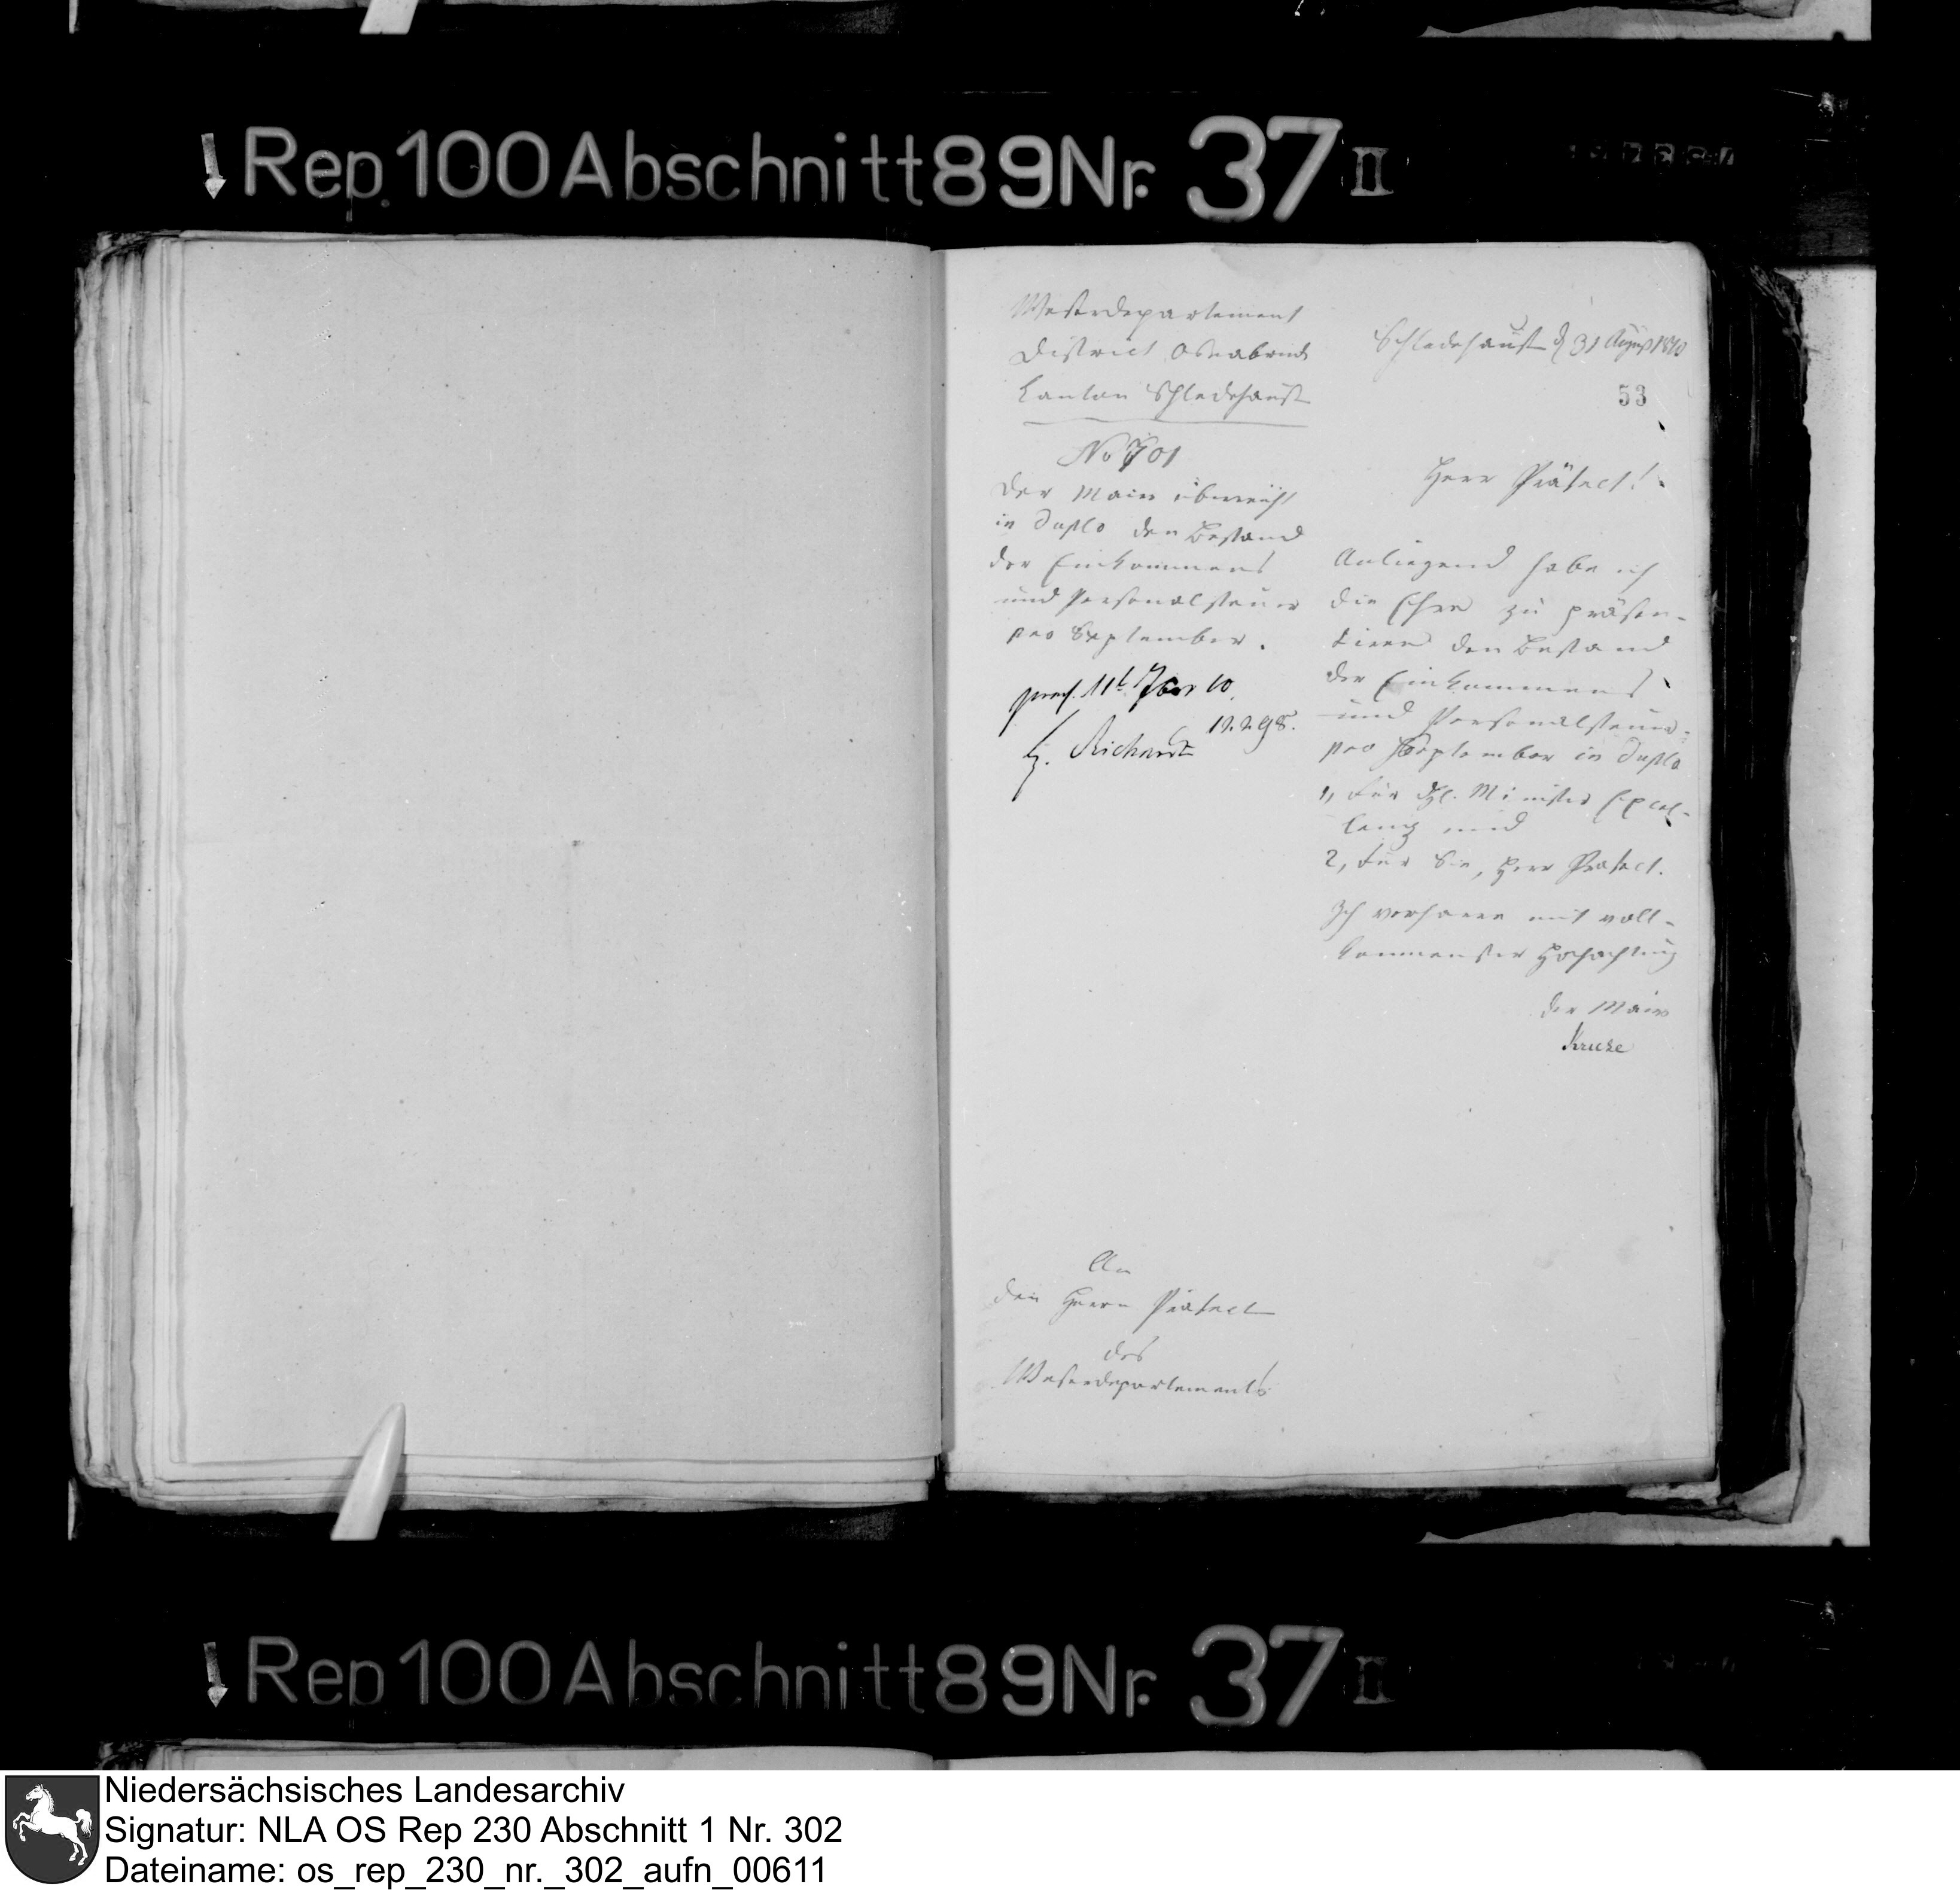 Rep. 100 Abschnitt 89 Nr. 37 II
Weserdepartement
District Osnabrück
Canton Schledehaus
No 701
Der Maire überreicht
in Duplo den Bestand
der Einkommens
und Personalsteuer
pro September.
praes. 11t 7ber 10.
12298.
Richard
Schledehausen d 31 August 1810
53
Herr Präfect!
Anliegend habe ich
die Ehre zu präsen-
tieren den Bestand
der Einkommens
und Personalsteuer
pro September in Duplo
1, für Minister Excel-
lenz und
2, für Sie, Herr Präfect.
Ich verharre mit voll-
kommenster Hochachtung
der Maire
Kruse
An
den Herrn Präfect
des
Weserdepartements
Rep 100 Abschnitt 89 Nr. 37 II
Niedersächsisches Landesarchiv
Signatur: NLA OS Rep 230 Abschnitt 1 Nr. 302
Dateiname: os_rep_230_nr._302_aufn_00611